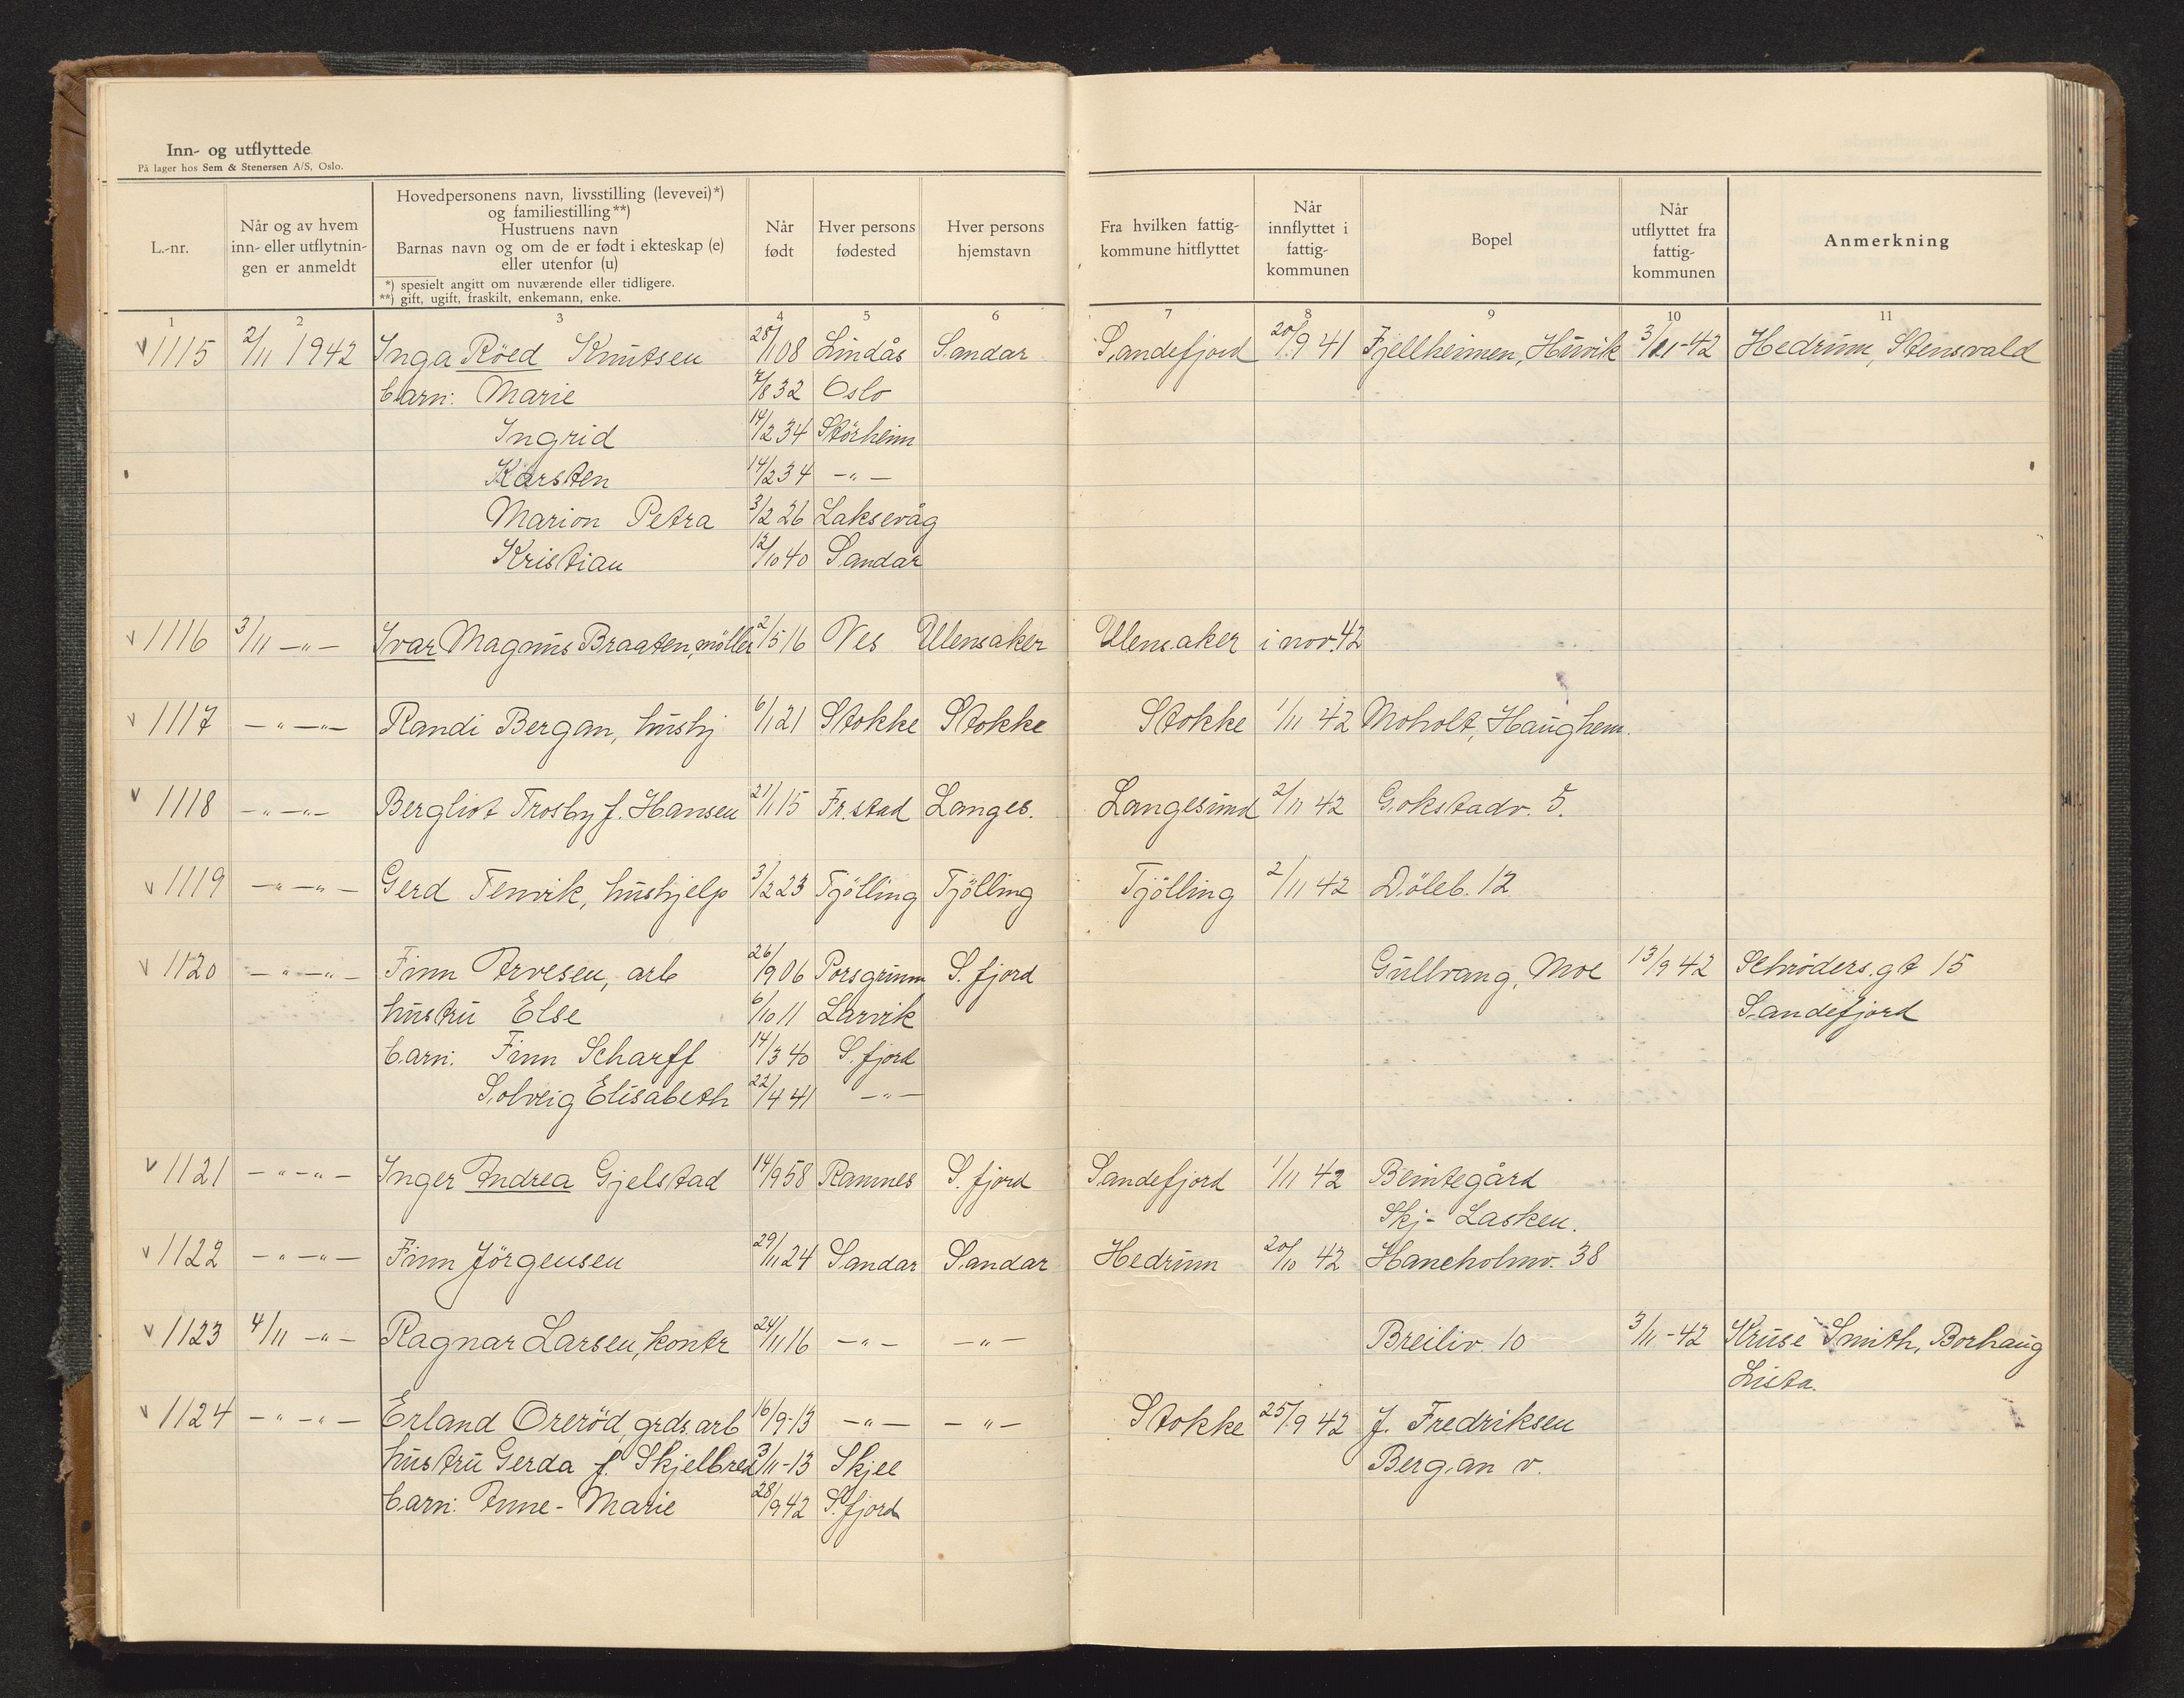 Inn- og utflyttede
På lager hos Sem & Stenersen A/S, Oslo.
L.-nr.
Når og av hvem
inn- eller utflytnin-
gen er anmeldt
Hovedpersonens navn, livsstilling (levevei)*)
og familiestilling**)
Hustruens navn
Barnas navn og om de er født i ekteskap (e)
eller utenfor (u)
*) spesielt angitt om nuværende eller tidligere.
**) gift, ugift, fraskilt, enkemann, enke.
Når
født
Hver persons
fødested
Hver persons
hjemstavn
Fra hvilken fattig-
kommune hitflyttet
Når
innflyttet i
fattig-
kommunen
Bopel
Når
utflyttet fra
fattig-
kommunen
Anmerkning
1 2 3 4 5 6 7 8 9 10 11
v 1115 2/11 1942 Inga Röed Knutsen 28/1 08 Lindås Sandar Sandefjord 20/9 41 Fjellheimen, Huvik 3/11-42 Hedrum, Stensvald
barn: Marie 7/8 32 Oslo
Ingrid 14/2 34 Störheim
Karsten 14/2 34 -"-
Marion Petra 3/2 26 Laksevåg
Kristian 12/10 40 Sandar
v 1116 3/11 -"- Ivar Magnus Braaten, möller 2/5 16 Nes Ullensaker Ullensaker i nov. 42
v 1117 -"- -"- Randi Bergan, hushj 6/1 21 Stokke Stokke Stokke 1/11 42 Moholt, Haughem.
v 1118 -"- -"- Bergliot Trosby f. Hansen 21/1 15 Fr.stad Langes. Langesund 2/11 42 Gokstadv. 5.
v 1119 -"- -"- Gerd Tenvik, hushjelp 3/2 23 Tjölling Tjölling Tjölling 2/11 42 Döleb. 12
v 1120 -"- -"- Finn Arvesen, arb 26/9 06 Porsgrunn S.fjord Gullvang, Moe 13/9 42 Schröders.gt 15
hustru Else 6/10 11 Larvik Sandefjord
barn: Finn Scharff 14/3 40 S.fjord
Solveig Elisabeth 22/4 41 -"-
v 1121 -"- -"- Inger Andrea Gjelstad 14/9 58 Ramnes S.fjord Sandefjord 1/11 42 Bentegård
Skj- Lasken.
v 1122 -"- -"- Finn Jörgensen 29/11 24 Sandar Sandar Hedrum 20/10 42 Haneholmv. 38
v 1123 4/11 -"- Ragnar Larsen, kontr 24/11 16 -"- -"- Breiliv. 10 3/11-42 Kruse Smith, Borhaug
Lista.
v 1124 -"- -"- Erland Oreröd, grds.arb 16/9-13 -"- -"- Stokke 25/9 42 J. Fredriksen
hustru Gerda f. Skjelbred 3/11-13 Skjee Bergan v.
barn: Anne-Marie 28/9 42 S.fjord